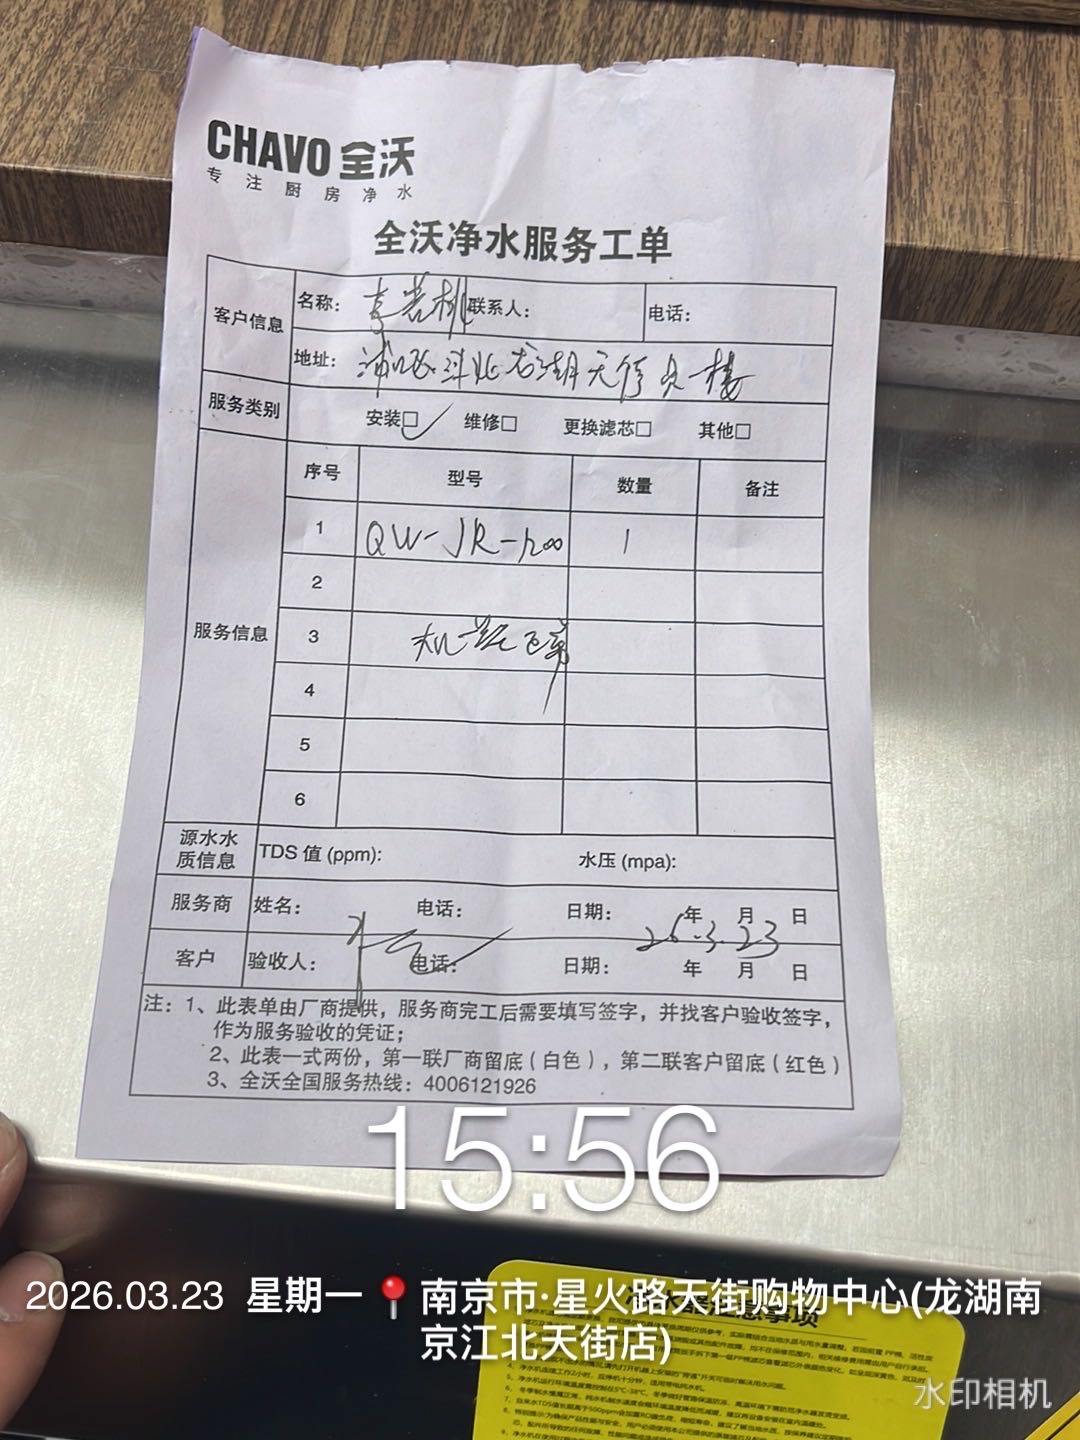 CHAVO 全沃
专注厨房净水
全沃净水服务工单
客户信息 名称： 联系人： 电话：
地址： 江北龙湖天街负一楼
服务类别 安装□✓ 维修□ 更换滤芯□ 其他□
服务信息 序号 型号 数量 备注
1 QW-JR-1200 1
2
3
4
5
6
源水水质信息 TDS 值 (ppm): 水压 (mpa):
服务商 姓名： 电话： 日期： 年 月 日
26.3.23
客户 验收人： 电话： 日期： 年 月 日
注：1、此表单由厂商提供，服务商完工后需要填写签字，并找客户验收签字，
作为服务验收的凭证；
2、此表一式两份，第一联厂商留底（白色），第二联客户留底（红色）
3、全沃全国服务热线：4006121926
15:56
2026.03.23 星期一 南京市·星火路天街购物中心(龙湖南
京江北天街店)
水印相机